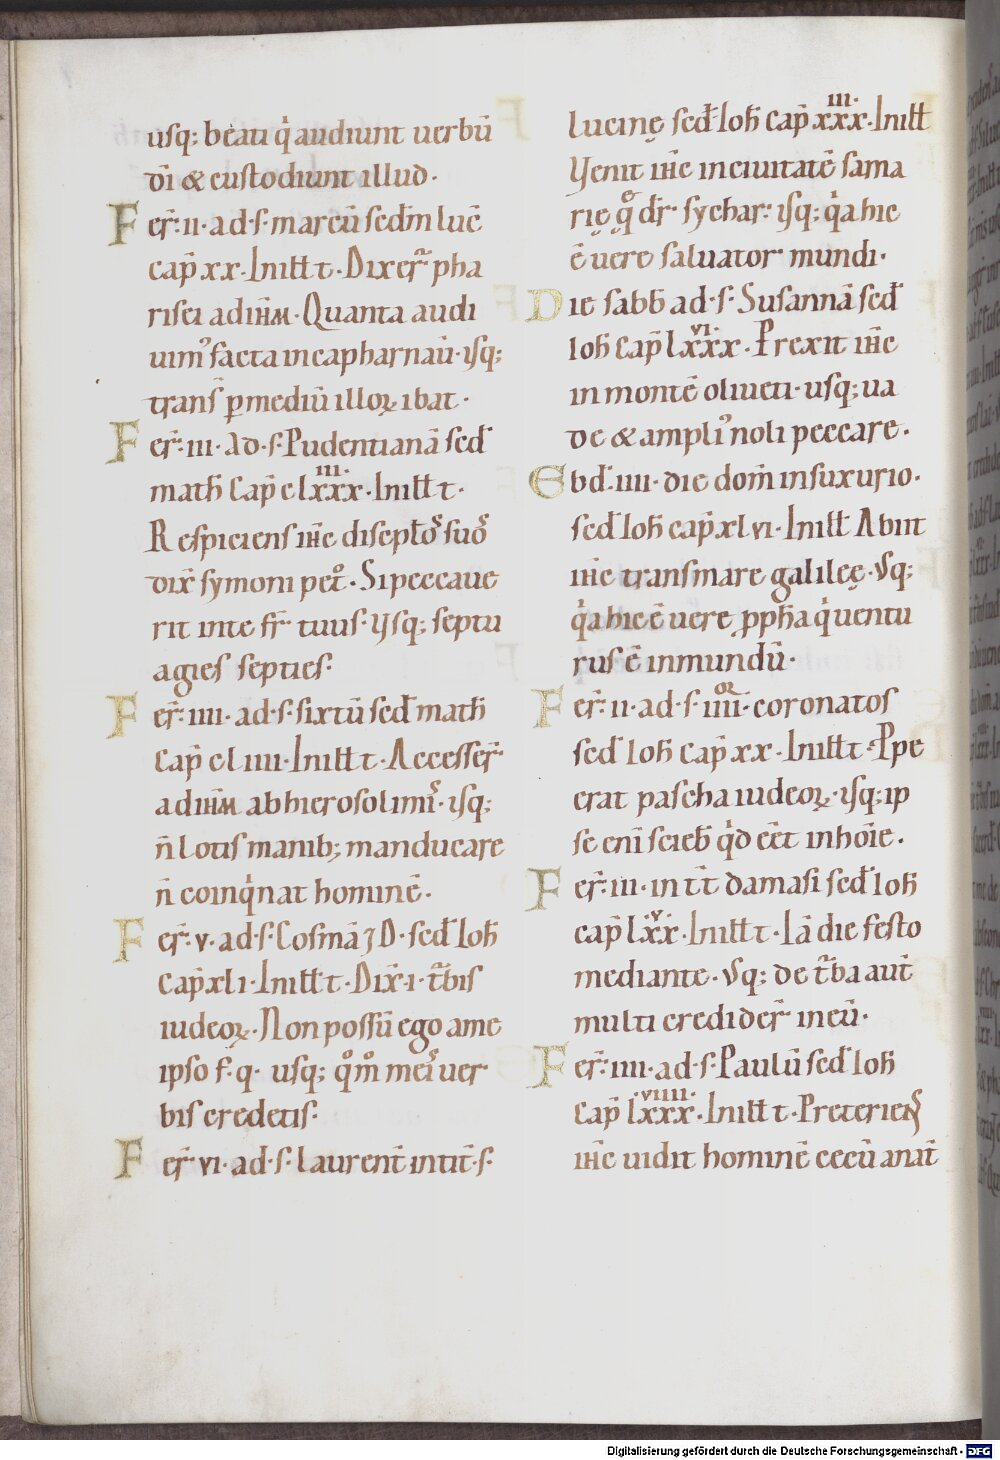 usq; beati q̇ audiunt uerbū
dī & custodiunt illud·
Fer̄· ii· ad· s· marcū sed̄m luc̄
cap̄ xx· Initt̄ t· Dixer̄ pha
risei ad ih̄m· Quanta audi
uim᾽ facta in capharnaū· usq;
trans̄ p̱ mediū illoꝝ ibat·
Fer̄· iii· ad· s· Pudentianā sed̄
math̄ Cap̄ clxxx·iii· Initt̄ t·
Respiciens ih̄c discipłos suos
dix̄ symoni petº· Si peccaue
rit in te fr̄ tuus· Usq; septu
agies septies·
Fer̄· iiii· ad· s· sixtū sed̄ math̄
Cap̄ cliiii· Initt̄ t· Accesser̄
ad ih̄m ab hierosolimis· usq;
n̄ lotis manib; manducare
n̄ coinq̇nat hominē·
Fer̄· v· ad· s· Cosmā ⁊ D· sed̄ Ioh̄
Cap̄ xli· Initt̄ t· Dix̄· i· t̄bis
iudeoꝝ· Non possū ego a me
ipso f̄· q· usq; qºmº meis uer
bis credetis·
Fer̄· vi· ad· s· laurent̄ in tit̄· s·
lucinę sed̄ Ioh̄ Cap̄ xxx·iii· Initt̄
Venit ih̄c in ciuitatē sama
rię q̨ dr̄ sychar· usq; q̇a hic
ē uere saluator mundi·
Die sabb̄ ad· s· Susannā sed̄
Ioh̄ Cap̄ lxxx·vi· Prexit ih̄c
in montē oliueti· usq; ua
de & ampli᾽ noli peccare·
Ebd̄· iiii· die dom̄ in suxurio·
sed̄ Ioh̄ cap̄ xlvi· Initt̄ Abiit
ih̄c trans mare galileę· Vsq;
q̇a hic ē uere ꝓph̄a q̇ uentu
rus ē in mundū·
Fer̄· ii· ad· s· iiiior· coronatos
sed̄ Ioh̄ cap̄ xx· Initt̄ t· Ppe
erat pascha iudeoꝝ· usq; ip
se eni scieb̄ q̇d eēt in hoīe·
Fer̄· iii· in tt̄ damasi sed̄ Ioh̄
cap̄ lxx·v· Initt̄ t· Iā die festo
mediante· Vsq; de t̄ba aut̄
multi credider̄ in eū·
Fer̄· iiii· ad· s· Paulū sed̄ Ioh̄
Cap̄ lxxx·viiii· Initt̄ t· Preteriens
ih̄c uidit hominē cecū a nat̄
Digitalisierung gefördert durch die Deutsche Forschungsgemeinschaft - DFG